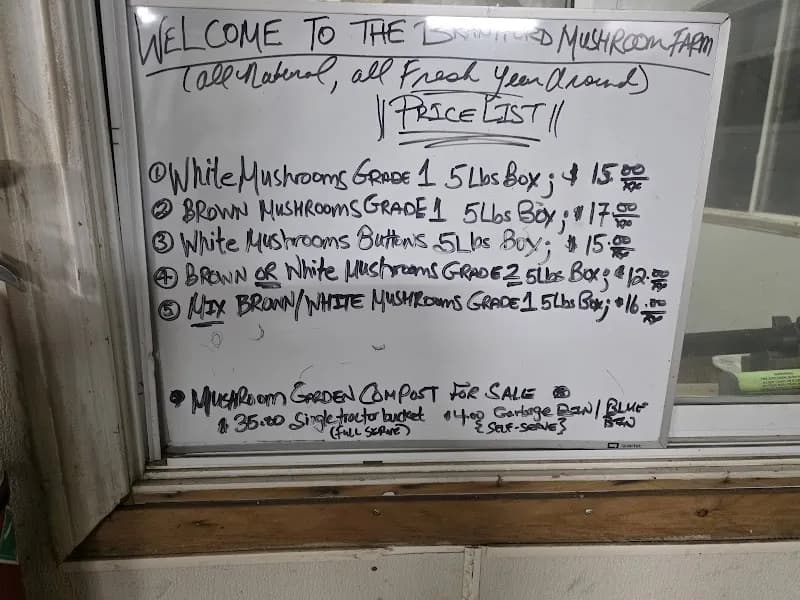 WELCOME TO THE BRANTFORD MUSHROOM FARM
(all Natural, all Fresh Year Around)
|| PRICE LIST ||
① White Mushrooms GRADE 1 5 Lbs Box; $ 15.00/xx
② BROWN MUSHROOMS GRADE 1 5 Lbs Box; $ 17.00/xx
③ White Mushrooms Buttons 5 Lbs Box; $ 15.00/xx
④ BROWN OR White Mushrooms GRADE 2 5 Lbs Box; $ 12.00/xx
⑤ MIX BROWN/WHITE MUSHROOMS GRADE 1 5 Lbs Box; $ 16.00/xx
• MUSHROOM GARDEN COMPOST FOR SALE •
$ 35.00 Single tractor bucket $4.00 Garbage BIN / BLUE BIN
(FULL SERVE) {SELF-SERVE}
WARNING